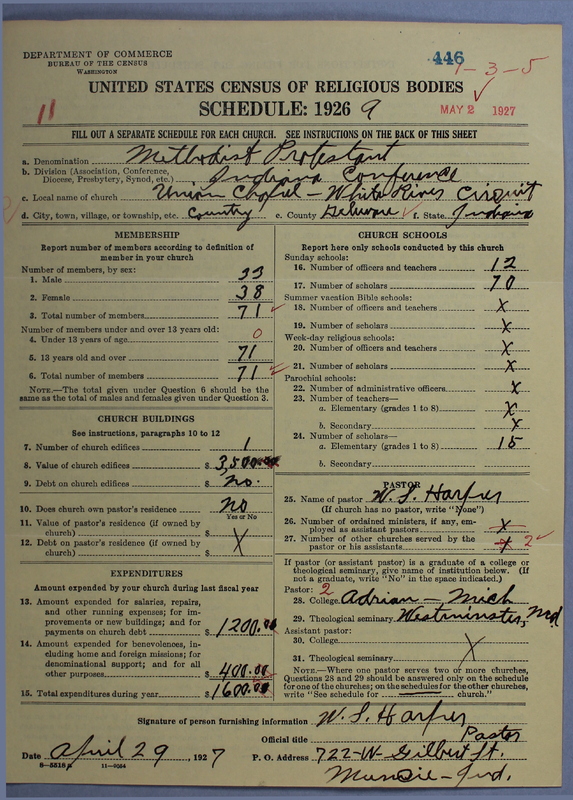 DEPARTMENT OF COMMERCE
BUREAU OF THE CENSUS
WASHINGTON
446
1-3-5
UNITED STATES CENSUS OF RELIGIOUS BODIES
SCHEDULE: 1926 9
11
MAY 2 1927
FILL OUT A SEPARATE SCHEDULE FOR EACH CHURCH. SEE INSTRUCTIONS ON THE BACK OF THIS SHEET
a. Denomination Methodist Protestant
b. Division (Association, Conference, Diocese, Presbytery, Synod, etc.) Indiana Conference
c. Local name of church Union Chapel - White River Circuit
d. City, town, village, or township, etc. Country e. County Delaware f. State Indiana
MEMBERSHIP
Report number of members according to definition of
member in your church
Number of members, by sex:
1. Male 33
2. Female 38
3. Total number of members 71
Number of members under and over 13 years old:
4. Under 13 years of age 0
5. 13 years old and over 71
6. Total number of members 71
NOTE.—The total given under Question 6 should be the
same as the total of males and females given under Question 3.
CHURCH BUILDINGS
See instructions, paragraphs 10 to 12
7. Number of church edifices 1
8. Value of church edifices $ 3,500.00
9. Debt on church edifices $ no.
10. Does church own pastor's residence? no
Yes or No
11. Value of pastor's residence (if owned by
church) $ X
12. Debt on pastor's residence (if owned by
church) $
EXPENDITURES
Amount expended by your church during last fiscal year
13. Amount expended for salaries, repairs,
and other running expenses; for im-
provements or new buildings; and for
payments on church debt $ 1200.00
14. Amount expended for benevolences, in-
cluding home and foreign missions; for
denominational support; and for all
other purposes $ 400.00
15. Total expenditures during year $ 1600.00
CHURCH SCHOOLS
Report here only schools conducted by this church
Sunday schools:
16. Number of officers and teachers 12
17. Number of scholars 70
Summer vacation Bible schools:
18. Number of officers and teachers X
19. Number of scholars X
Week-day religious schools:
20. Number of officers and teachers X
21. Number of scholars X
Parochial schools:
22. Number of administrative officers X
23. Number of teachers—
a. Elementary (grades 1 to 8) X
b. Secondary X
24. Number of scholars—
a. Elementary (grades 1 to 8) 15
b. Secondary
PASTOR
25. Name of pastor W. L. Harper
(If church has no pastor, write "None")
26. Number of ordained ministers, if any, em-
ployed as assistant pastors X
27. Number of other churches served by the
pastor or his assistants 2
If pastor (or assistant pastor) is a graduate of a college or
theological seminary, give name of institution below. (If
not a graduate, write "No" in the space indicated.)
Pastor: 2
28. College Adrian - Mich
29. Theological seminary Westminster, Md.
Assistant pastor:
30. College
31. Theological seminary X
NOTE.—Where one pastor serves two or more churches,
Questions 28 and 29 should be answered only on the schedule
for one of the churches; on the schedules for the other churches,
write "See schedule for church."
Signature of person furnishing information W. L. Harper
Official title Pastor
Date April 29, 1927 P. O. Address 722-W-Gilbert St.
8—5518a 11—9054
Muncie-Ind.